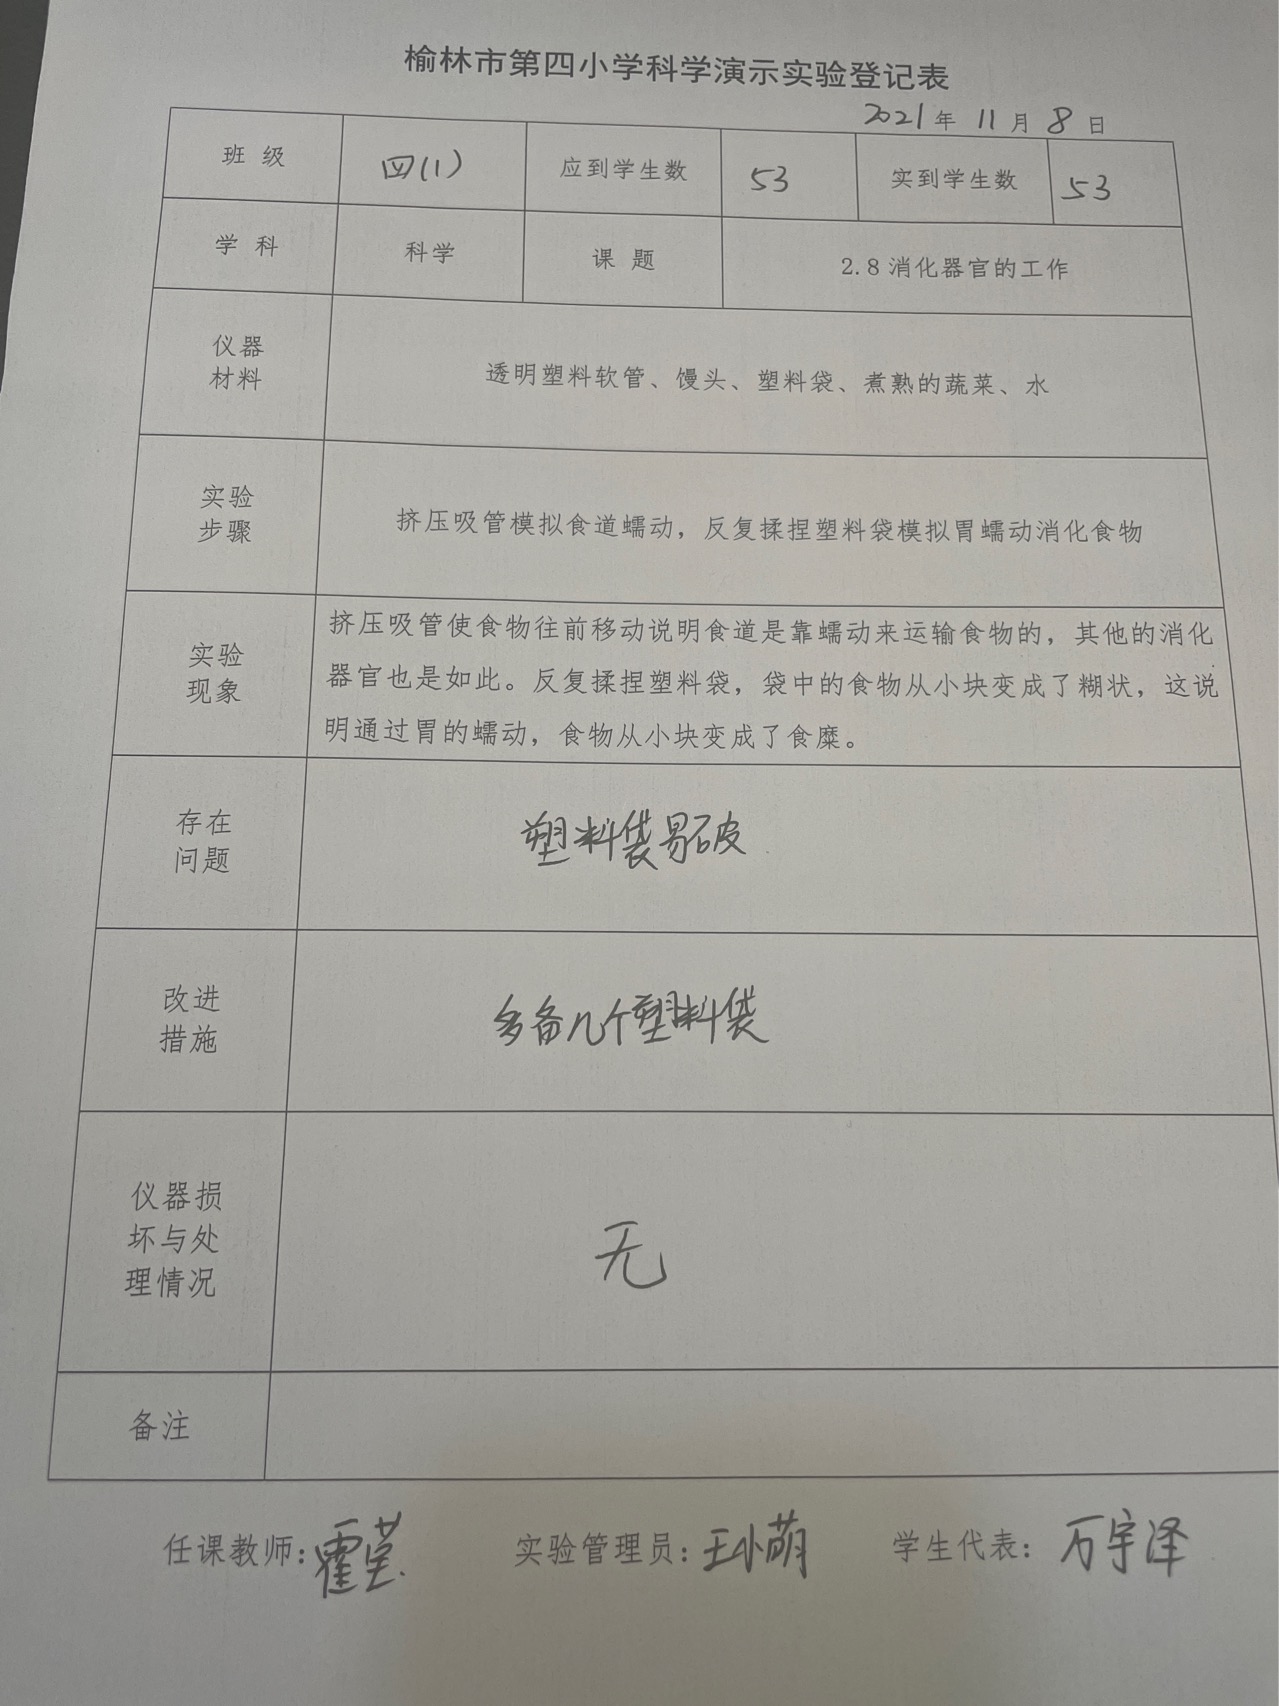 榆林市第四小学科学演示实验登记表
2021年 11月 8日
班 级 四(1) 应到学生数 53 实到学生数 53
学 科 科学 课 题 2.8消化器官的工作
仪器
材料
透明塑料软管、馒头、塑料袋、煮熟的蔬菜、水
实验
步骤
挤压吸管模拟食道蠕动，反复揉捏塑料袋模拟胃蠕动消化食物
实验
现象
挤压吸管使食物往前移动说明食道是靠蠕动来运输食物的，其他的消化
器官也是如此。反复揉捏塑料袋，袋中的食物从小块变成了糊状，这说
明通过胃的蠕动，食物从小块变成了食糜。
存在
问题
塑料袋易破
改进
措施
多备几个塑料袋
仪器损
坏与处
理情况
无
备注
任课教师：霍莹 实验管理员：王小萌 学生代表：万宇泽